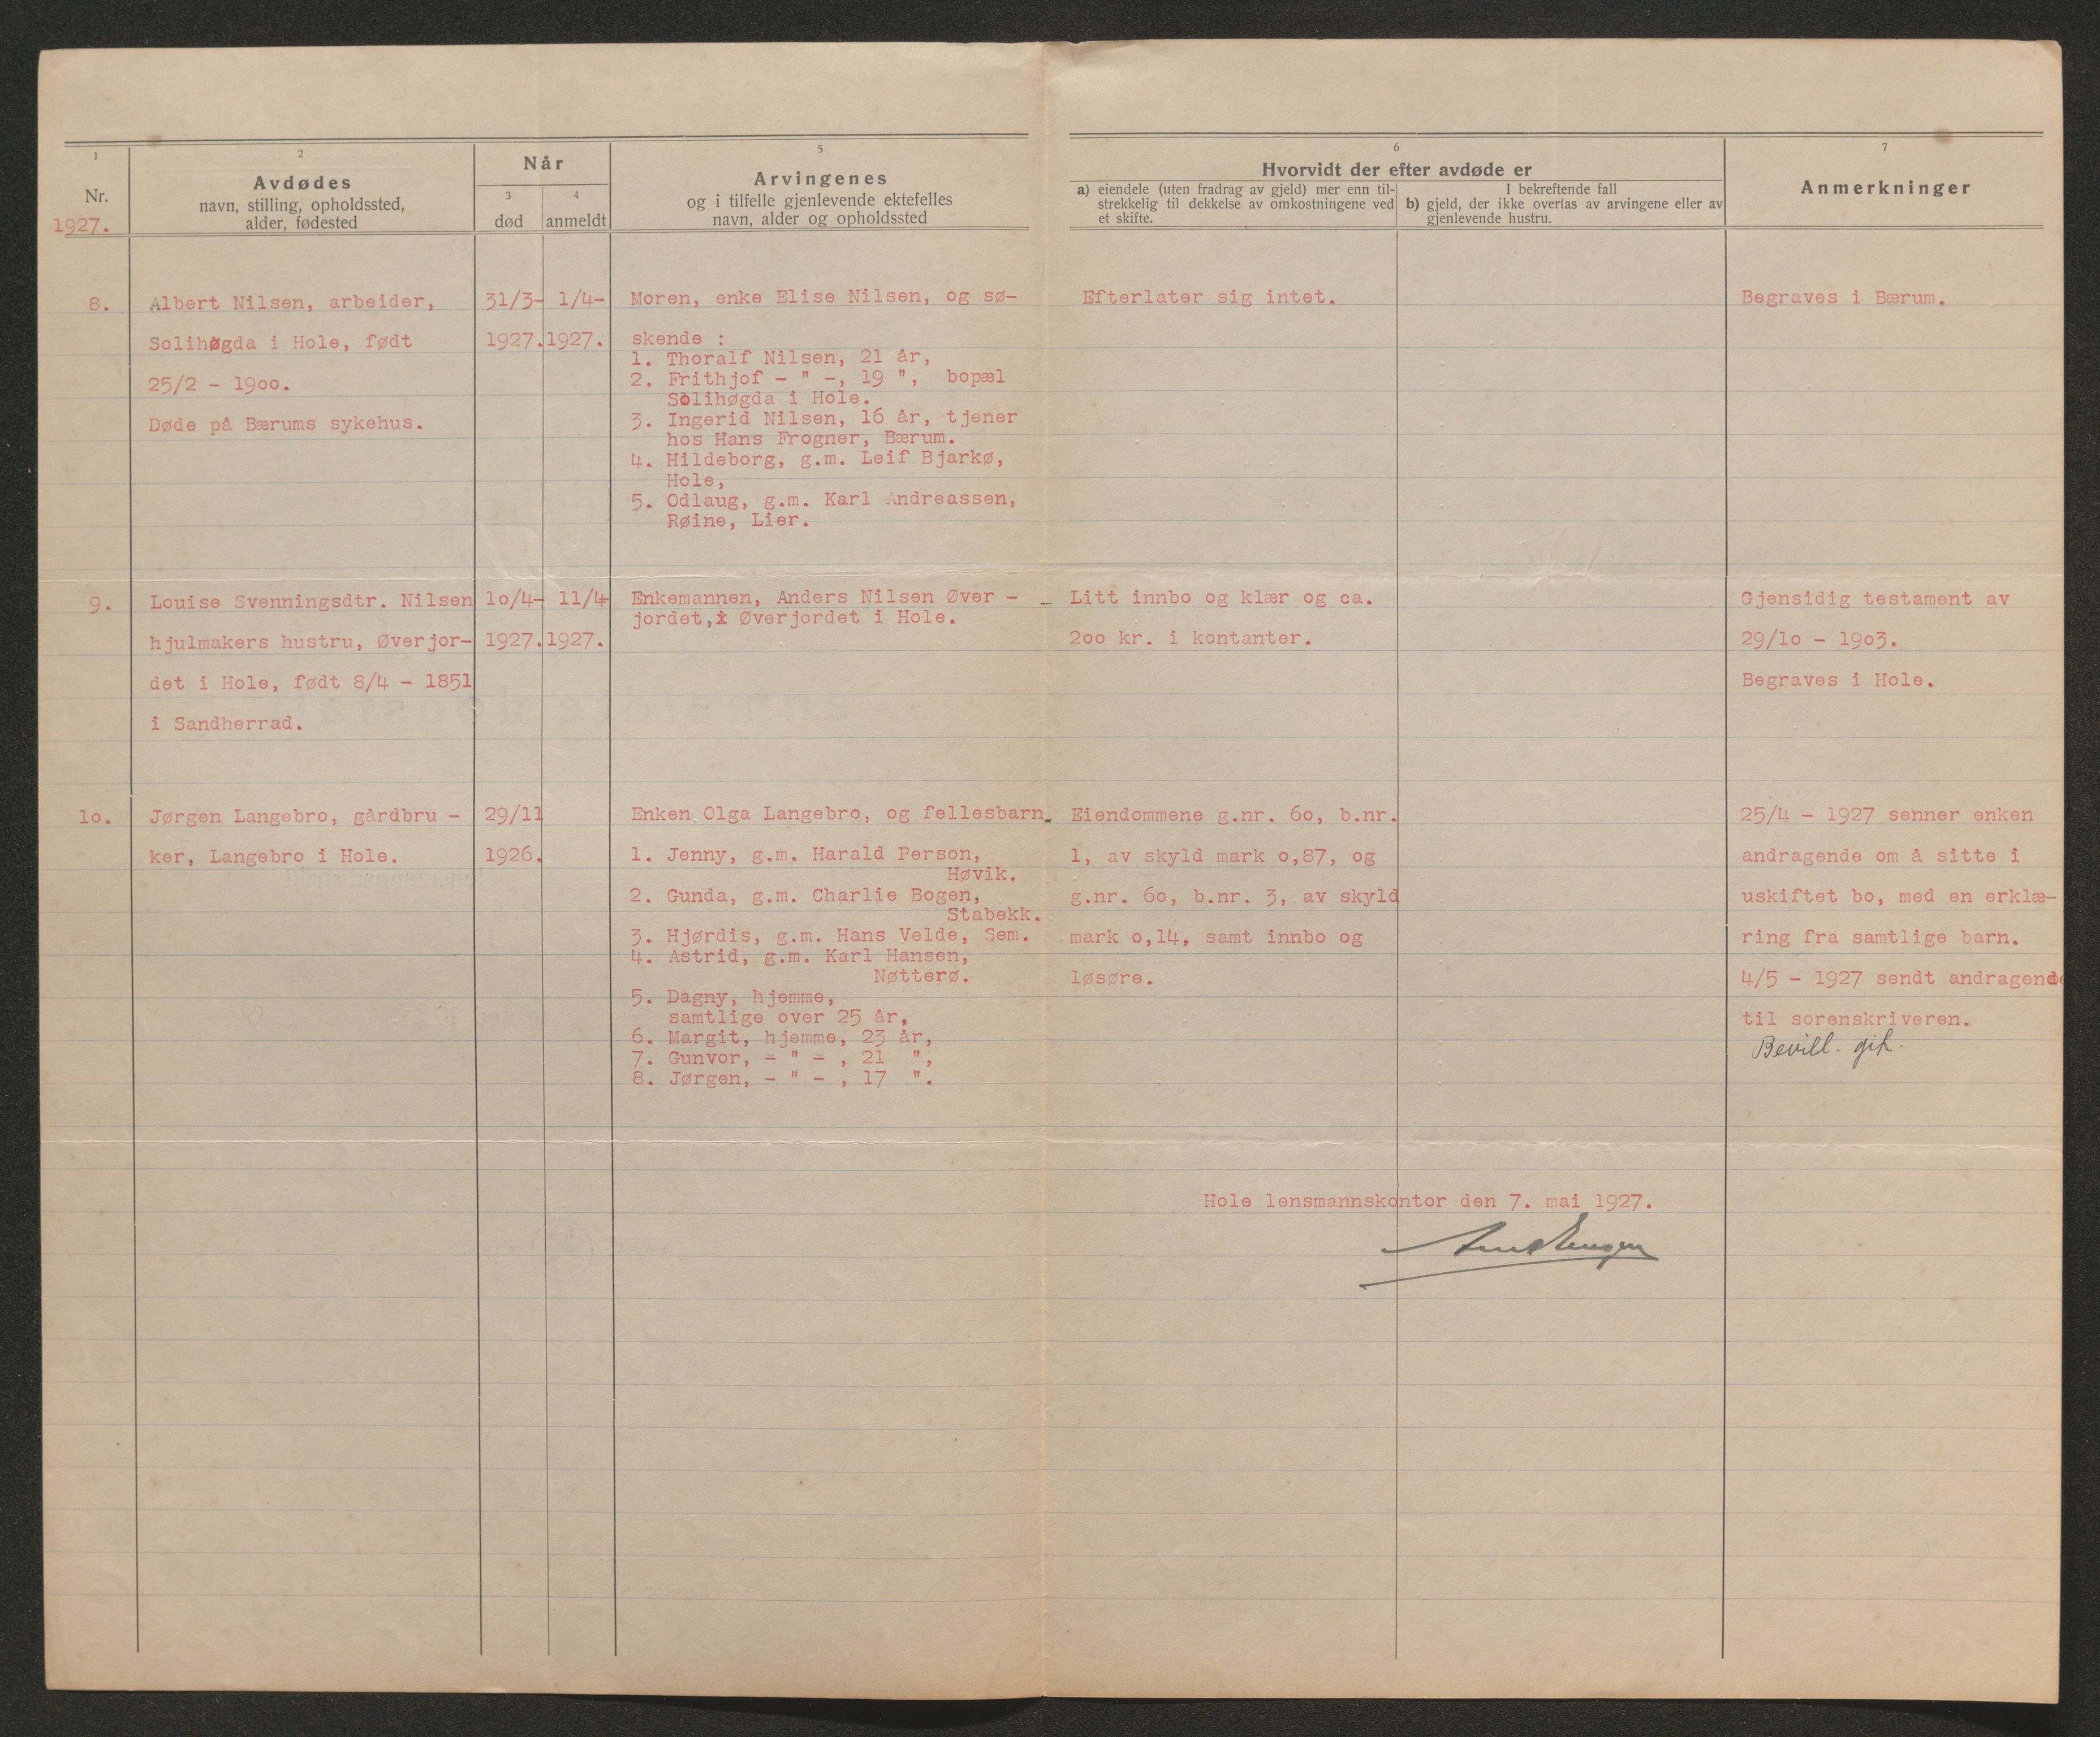 1
Nr.
1927.
2
Avdødes
navn, stilling, opholdssted,
alder, fødested
Når
3
død
4
anmeldt
5
Arvingenes
og i tilfelle gjenlevende ektefelles
navn, alder og opholdssted
6
Hvorvidt der efter avdøde er
a) eiendele (uten fradrag av gjeld) mer enn til-
strekkelig til dekkelse av omkostningene ved
et skifte.
I bekreftende fall
b) gjeld, der ikke overtas av arvingene eller av
gjenlevende hustru.
7
Anmerkninger
8.
Albert Nilsen, arbeider,
Solihøgda i Hole, født
25/2 - 19oo.
Døde på Bærums sykehus.
31/3-
1927.
1/4-
1927.
Moren, enke Elise Nilsen, og sø-
skende :
1. Thoralf Nilsen, 21 år,
2. Frithjof - " -, 19 ", bopæl
Solihøgda i Hole.
3. Ingerid Nilsen, 16 år, tjener
hos Hans Frogner, Bærum.
4. Hildeborg, g.m. Leif Bjarkø,
Hole,
5. Odlaug, g.m. Karl Andreassen,
Røine, Lier.
Efterlater sig intet.
Begraves i Bærum.
9.
Louise Svenningsdtr. Nilsen
hjulmakers hustru, Øverjor-
det i Hole, født 8/4 - 1851
i Sandherrad.
1o/4-
1927.
11/4
1927.
Enkemannen, Anders Nilsen Øver -
jordet, Øverjordet i Hole.
Litt innbo og klær og ca.
2oo kr. i kontanter.
Gjensidig testament av
29/1o - 19o3.
Begraves i Hole.
1o.
Jørgen Langebro, gårdbru -
ker, Langebro i Hole.
29/11
1926.
Enken Olga Langebro, og fellesbarn
1. Jenny, g.m. Harald Person,
Høvik.
2. Gunda, g.m. Charlie Bogen,
Stabekk.
3. Hjørdis, g.m. Hans Velde, Sem.
4. Astrid, g.m. Karl Hansen,
Nøtterø.
5. Dagny, hjemme,
samtlige over 25 år,
6. Margit, hjemme, 23 år,
7. Gunvor, - " - , 21 ",
8. Jørgen, - " - , 17 ".
Eiendommene g.nr. 6o, b.nr.
1, av skyld mark o,87, og
g.nr. 6o, b.nr. 3, av skyld
mark o,14, samt innbo og
løsøre.
25/4 - 1927 senner enken
andragende om å sitte i
uskiftet bo, med en erklæ-
ring fra samtlige barn.
4/5 - 1927 sendt andragende
til sorenskriveren.
Bevill. git.
Hole lensmannskontor den 7. mai 1927.